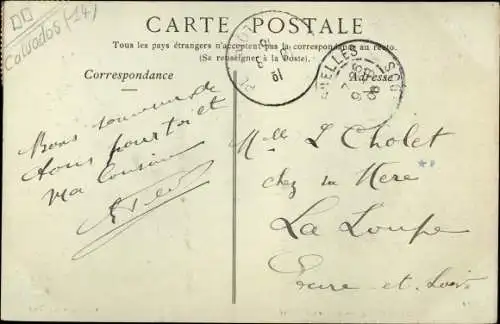 Calvados (14)
CARTE POSTALE
Tous les pays étrangers n'acceptent pas la correspondance au recto.
(Se renseigner à la Poste).
Correspondance
Adresse
Bons souvenirs de
tous pour toi et
ma cousine
Mlle L Cholet
chez sa Mère
La Loupe
Eure et Loir